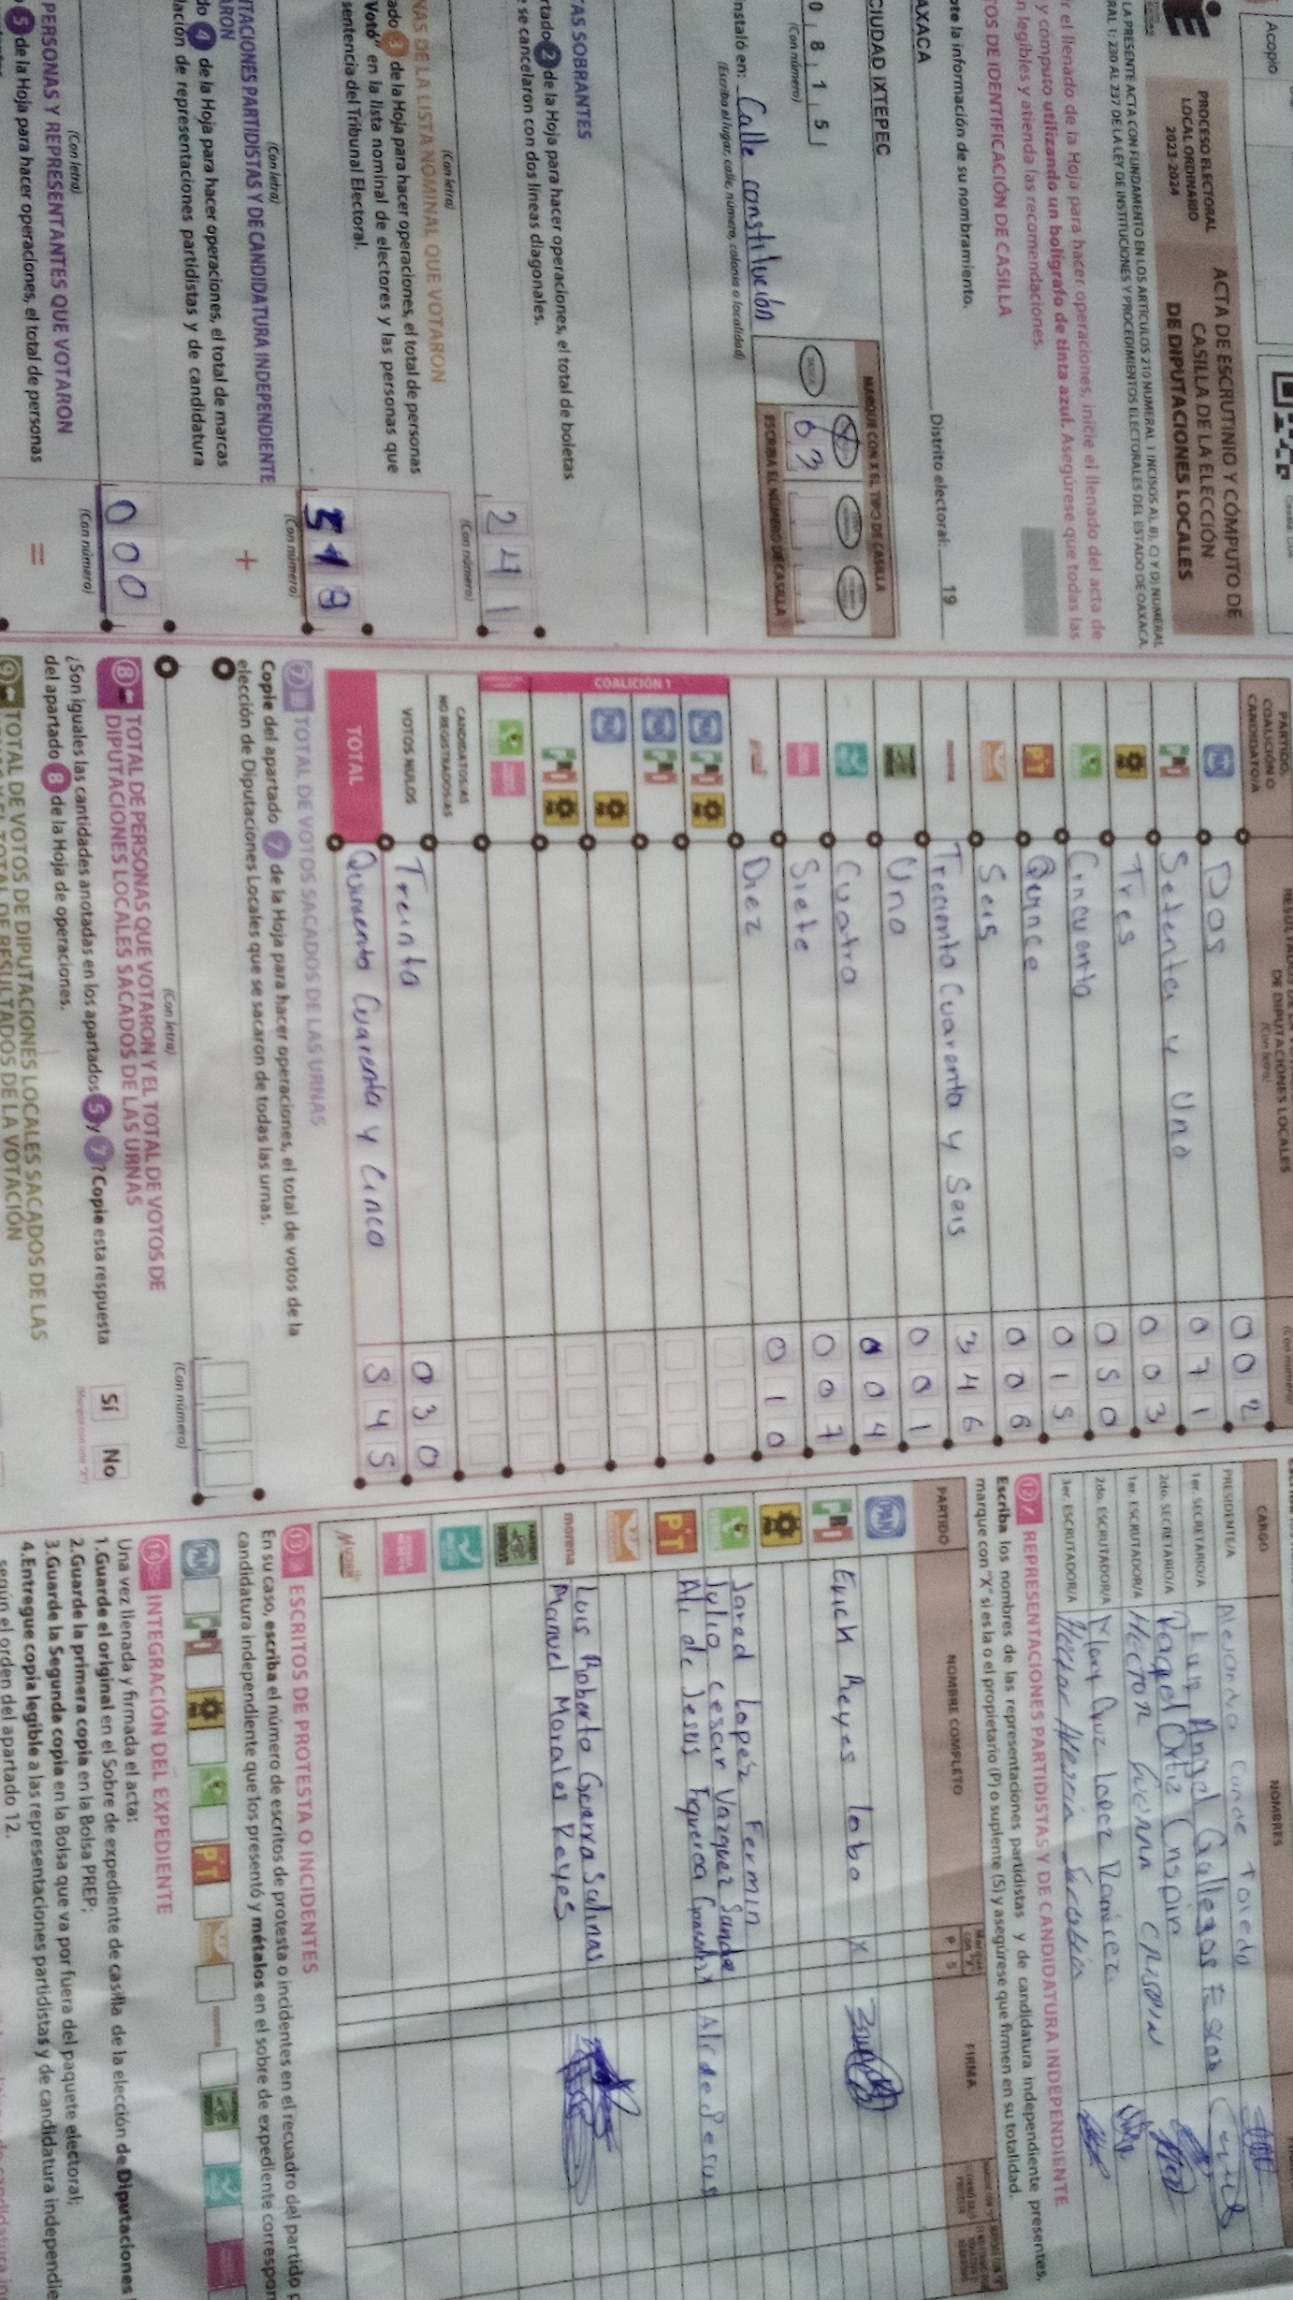 Acopio
PROCESO ELECTORAL
LOCAL ORDINARIO
2023-2024
ACTA DE ESCRUTINIO Y CÓMPUTO DE
CASILLA DE LA ELECCIÓN
DE DIPUTACIONES LOCALES
LA PRESENTE ACTA CON FUNDAMENTO EN LOS ARTÍCULOS 210 NUMERAL 1 INCISOS A), B), C) Y D) NUMERAL
RAL 1; 230 AL 237 DE LA LEY DE INSTITUCIONES Y PROCEDIMIENTOS ELECTORALES DEL ESTADO DE OAXACA.
r el llenado de la Hoja para hacer operaciones, inicie el llenado del acta de
y cómputo utilizando un bolígrafo de tinta azul. Asegúrese que todas las
n legibles y atienda las recomendaciones.
TOS DE IDENTIFICACIÓN DE CASILLA
ote la información de su nombramiento.
AXACA
Distrito electoral: 19
CIUDAD IXTEPEC
MARQUE CON X EL TIPO DE CASILLA
0 8 1 5
(Con número)
03
ESCRIBA EL NÚMERO DE CASILLA
nstaló en: Calle constitución
(Escriba el lugar, calle, número, colonia o localidad)
AS SOBRANTES
rtado 2 de la Hoja para hacer operaciones, el total de boletas
e se cancelaron con dos líneas diagonales.
241
(Con letra)
(Con número)
NAS DE LA LISTA NOMINAL QUE VOTARON
ado 3 de la Hoja para hacer operaciones, el total de personas
Votó" en la lista nominal de electores y las personas que
sentencia del Tribunal Electoral.
(Con letra)
(Con número)
NTACIONES PARTIDISTAS Y DE CANDIDATURA INDEPENDIENTE
ARON
+
do 4 de la Hoja para hacer operaciones, el total de marcas
lación de representaciones partidistas y de candidatura
000
(Con letra)
(Con número)
PERSONAS Y REPRESENTANTES QUE VOTARON
=
5 de la Hoja para hacer operaciones, el total de personas
PARTIDO,
COALICIÓN O
CANDIDATO/A
DE DIPUTACIONES LOCALES
(Con letra)
(Con número)
Dos 002
PRI Setenta y Uno 071
Tres 003
Cincuenta 050
PT Quince 015
Seis 006
morena Treciento Cuarenta y Seis 346
Uno 001
Cuatro 004
Siete 007
Diez 010
COALICIÓN 1
CANDIDATOS/AS
NO REGISTRADOS/AS
VOTOS NULOS Treinta 030
TOTAL Quiniento Cuarenta y Cinco 545
7 TOTAL DE VOTOS SACADOS DE LAS URNAS
Copie del apartado 7 de la Hoja para hacer operaciones, el total de votos de la
elección de Diputaciones Locales que se sacaron de todas las urnas.
(Con letra)
(Con número)
8 TOTAL DE PERSONAS QUE VOTARON Y EL TOTAL DE VOTOS DE
DIPUTACIONES LOCALES SACADOS DE LAS URNAS
¿Son iguales las cantidades anotadas en los apartados 5 y 7? Copie esta respuesta
del apartado 8 de la Hoja de operaciones.
Sí No
9 TOTAL DE VOTOS DE DIPUTACIONES LOCALES SACADOS DE LAS
URNAS Y EL TOTAL DE RESULTADOS DE LA VOTACIÓN
CARGO
NOMBRES
PRESIDENTE/A Alejandro Conde Toledo
1er. SECRETARIO/A Luis Angel Gallegos
2do. SECRETARIO/A Raquel Ortiz Crispin
1er. ESCRUTADOR/A HECTOR GUERRA CRISPIN
2do. ESCRUTADOR/A Flor Cruz Lopez Ramirez
3er. ESCRUTADOR/A
12 REPRESENTACIONES PARTIDISTAS Y DE CANDIDATURA INDEPENDIENTE
Escriba los nombres de las representaciones partidistas y de candidatura independiente presentes,
marque con "X" si es la o el propietario (P) o suplente (S) y asegúrese que firmen en su totalidad.
PARTIDO
NOMBRE COMPLETO
P S
FIRMA
PAN
PRI Erick Reyes lobo X
Jared Lopez Fermin
Julio cesar Vazquez
PT Ali de Jesus Figueroa Ali de Jesus
morena Luis Roberto Guerra Salinas
Manuel Morales Reyes
13 ESCRITOS DE PROTESTA O INCIDENTES
En su caso, escriba el número de escritos de protesta o incidentes en el recuadro del partido p
candidatura independiente que los presentó y métalos en el sobre de expediente correspon
PAN PRI PT morena
14 INTEGRACIÓN DEL EXPEDIENTE
Una vez llenada y firmada el acta:
1.Guarde el original en el Sobre de expediente de casilla de la elección de Diputaciones
2.Guarde la primera copia en la Bolsa PREP;
3.Guarde la Segunda copia en la Bolsa que va por fuera del paquete electoral;
4.Entregue copia legible a las representaciones partidistas y de candidatura independie
según el orden del apartado 12.